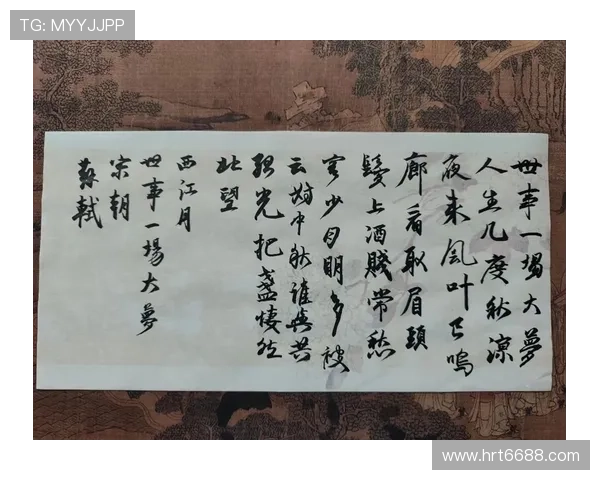 TG: MYYJJPP
世事一場大夢
人生几度秋涼
夜来風叶已鳴
廊看取眉頭
鬢上酒賤常愁
客少月明多被
云妨中秋誰與共
孤光把盞悽然
北望
西江月
世事一場大夢
宋朝
蘇軾
www.hrt6688.com